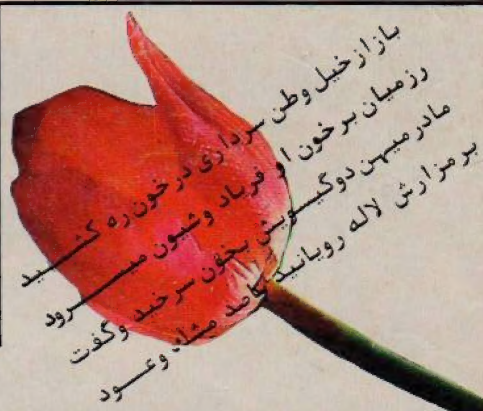 باز از خیل وطن سرداری در خون ره کشید
رزمیان بر خون او فریاد وشیون میرود
مادر میهن دوگیسویش بخون سرخید وگفت
بر مزارش لاله رویانید صد مشک وعود